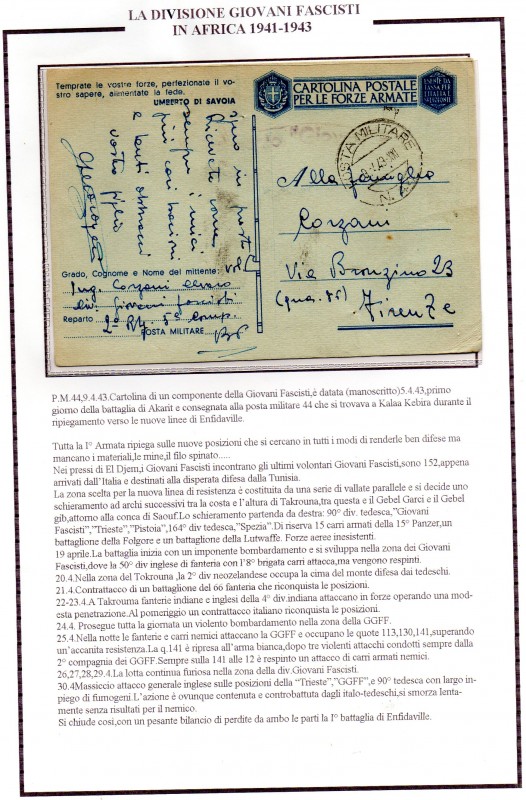 LA DIVISIONE GIOVANI FASCISTI
IN AFRICA 1941-1943
Temprate le vostre forze, perfezionate il vo-
stro sapere, alimentate la fede.
UMBERTO DI SAVOIA
CARTOLINA POSTALE
PER LE FORZE ARMATE
ESENTE DA
TASSA PER
L'ITALIA E
POSTA MILITARE
N.
Alla famiglia
Corzani
Via Bronzino 23
Firenze
miei
più cari
e tanti abbracci
vostro figlio
Grado, Cognome e Nome del mittente:
Corzani
div. Giovani fascisti
Reparto
POSTA MILITARE
P.M.44,9.4.43.Cartolina di un componente della Giovani Fascisti,è datata (manoscritto)5.4.43,primo
giorno della battaglia di Akarit e consegnata alla posta militare 44 che si trovava a Kalaa Kebira durante il
ripiegamento verso le nuove linee di Enfidaville.
Tutta la I° Armata ripiega sulle nuove posizioni che si cercano in tutti i modi di renderle ben difese ma
mancano i materiali,le mine,il filo spinato.....
Nei pressi di El Djem,i Giovani Fascisti incontrano gli ultimi volontari Giovani Fascisti,sono 152,appena
arrivati dall'Italia e destinati alla disperata difesa dalla Tunisia.
La zona scelta per la nuova linea di resistenza è costituita da una serie di vallate parallele e si decide uno
schieramento ad archi successivi tra la costa e l'altura di Takrouna,tra questa e il Gebel Garci e il Gebel
gib,attorno alla conca di Saouf.Lo schieramento partenda da destra: 90° div. tedesca,"Giovani
Fascisti","Trieste","Pistoia",164° div tedesca,"Spezia".Di riserva 15 carri armati della 15° Panzer,un
battaglione della Folgore e un battaglione della Lutwaffe. Forze aeree inesistenti.
19 aprile.La battaglia inizia con un imponente bombardamento e si sviluppa nella zona dei Giovani
Fascisti,dove la 50° div inglese di fanteria con l'8° brigata carri attacca,ma vengono respinti.
20.4.Nella zona del Tokrouna ,la 2° div neozelandese occupa la cima del monte difesa dai tedeschi.
21.4.Contrattacco di un battaglione del 66 fanteria che riconquista le posizioni.
22-23.4.A Takrouma fanterie indiane e inglesi della 4° div.indiana attaccano in forze operando una mod-
esta penetrazione.Al pomeriggio un contrattacco italiano riconquista le posizioni.
24.4. Prosegue tutta la giornata un violento bombardamento nella zona della GGFF.
25.4.Nella notte le fanterie e carri nemici attaccano la GGFF e occupano le quote 113,130,141,superando
un'accanita resistenza.La q.141 è ripresa all'arma bianca,dopo tre violenti attacchi condotti sempre dalla
2° compagnia dei GGFF.Sempre sulla 141 alle 12 è respinto un attacco di carri armati nemici.
26,27,28,29.4.La lotta continua furiosa nella zona della div.Giovani Fascisti.
30.4Massiccio attacco generale inglese sulle posizioni della "Trieste","GGFF",e 90° tedesca con largo in-
piego di fumogeni.L'azione è ovunque contenuta e controbattuta dagli italo-tedeschi,si smorza lenta-
mente senza risultati per il nemico.
Si chiude cosi,con un pesante bilancio di perdite da ambo le parti la I° battaglia di Enfidaville.